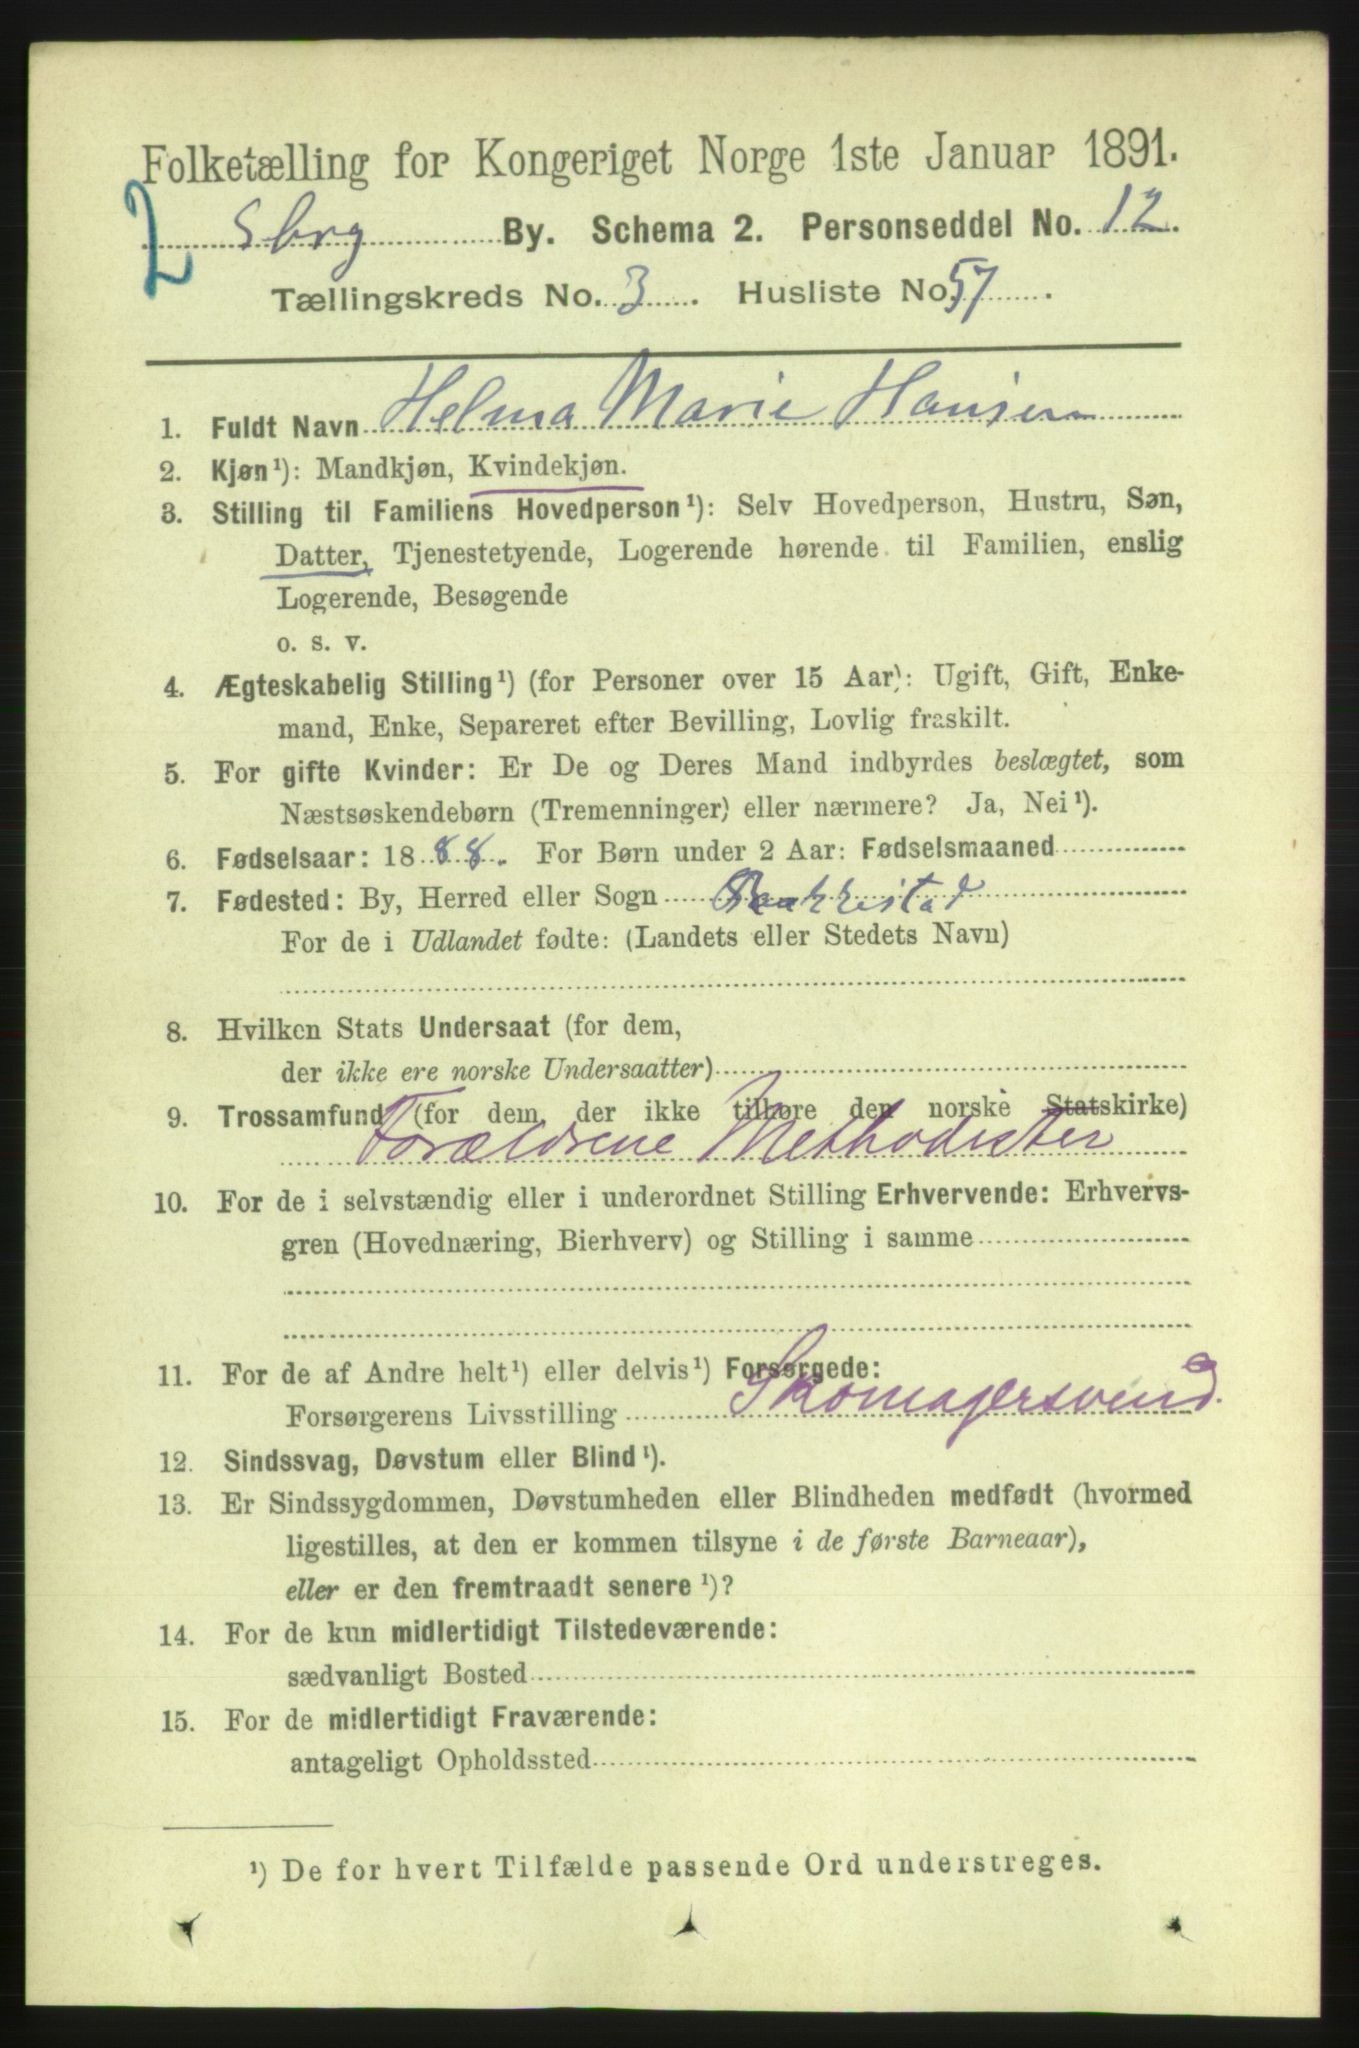 Folketælling for Kongeriget Norge 1ste Januar 1891.
2 Sbrg By. Schema 2. Personseddel No. 12.
Tællingskreds No. 3. Husliste No. 57.
1. Fuldt Navn Helma Marie Hansen
2. Kjøn¹): Mandkjøn, Kvindekjøn.
3. Stilling til Familiens Hovedperson¹): Selv Hovedperson, Hustru, Søn,
Datter, Tjenestetyende, Logerende hørende til Familien, enslig
Logerende, Besøgende
o. s. v.
4. Ægteskabelig Stilling¹) (for Personer over 15 Aar): Ugift, Gift, Enke-
mand, Enke, Separeret efter Bevilling, Lovlig fraskilt.
5. For gifte Kvinder: Er De og Deres Mand indbyrdes beslægtet, som
Næstsøskendebørn (Tremenninger) eller nærmere? Ja, Nei¹).
6. Fødselsaar: 1888. For Børn under 2 Aar: Fødselsmaaned
7. Fødested: By, Herred eller Sogn
For de i Udlandet fødte: (Landets eller Stedets Navn)
8. Hvilken Stats Undersaat (for dem,
der ikke ere norske Undersaatter)
9. Trossamfund (for dem, der ikke tilhøre den norske Statskirke)
Forældrene Methodister
10. For de i selvstændig eller i underordnet Stilling Erhvervende: Erhvervs-
gren (Hovednæring, Bierhverv) og Stilling i samme
11. For de af Andre helt¹) eller delvis¹) Forsørgede:
Forsørgerens Livsstilling Skomagersvend.
12. Sindssvag, Døvstum eller Blind¹).
13. Er Sindssygdommen, Døvstumheden eller Blindheden medfødt (hvormed
ligestilles, at den er kommen tilsyne i de første Barneaar),
eller er den fremtraadt senere¹)?
14. For de kun midlertidigt Tilstedeværende:
sædvanligt Bosted
15. For de midlertidigt Fraværende:
antageligt Opholdssted
¹) De for hvert Tilfælde passende Ord understreges.